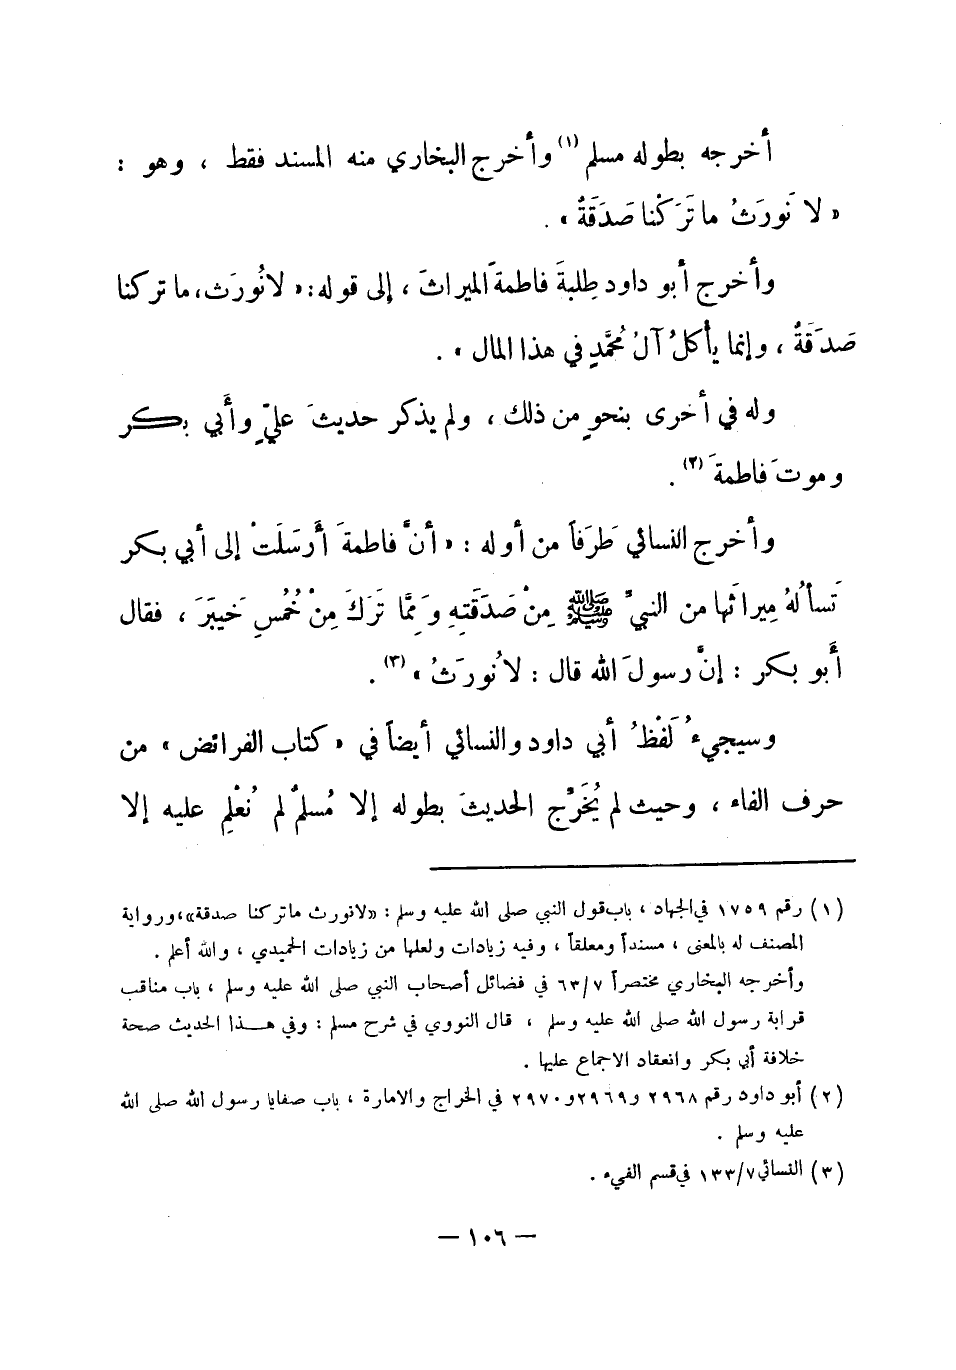 أخرجه بطوله مسلم (١) وأخرج البخاري منه المسند فقط ، وهو :
« لا نَورَثُ ما تَرَكْنا صَدَقَةٌ » .
وأخرج أبو داود طِلبةَ فاطمةَ الميراثَ ، إلى قوله: « لا نُورَث، ما تركنا
صَدَقَةٌ ، وإنما يأكلُ آلُ مُحمَّدٍ في هذا المال » .
وله في أخرى بنحوٍ من ذلك ، ولم يذكر حديثَ عليٍّ وأَبي بكر
وموتَ فاطمةَ (٢) .
وأخرج النسائي طَرَفاً من أوله : « أنَّ فاطمةَ أَرسَلَتْ إلى أبي بكر
تَسألُهُ مِيراثَها من النبيِّ ﷺ مِنْ صَدَقَتِهِ وَمِمَّا تَرَكَ مِنْ خُمُسِ خَيبَرَ ، فقال
أَبو بكر : إنَّ رسولَ الله قال : لا نُورَثُ » (٣) .
وسيجيءُ لَفْظُ أبي داود والنسائي أيضاً في « كتاب الفرائض » من
حرف الفاء ، وحيث لم يُخَرِّج الحديثَ بطوله إلا مُسلمٌ لم نُعْلِم عليه إلا
(١) رقم ١٧٥٩ في الجهاد ، باب قول النبي صلى الله عليه وسلم : «لا نورث ما تركنا صدقة»، ورواية
المصنف له بالمعنى ، مسنداً ومعلقاً ، وفيه زيادات ولعلها من زيادات الحميدي ، والله أعلم .
وأخرجه البخاري مختصراً ٦٣/٧ في فضائل أصحاب النبي صلى الله عليه وسلم ، باب مناقب
قرابة رسول الله صلى الله عليه وسلم ، قال النووي في شرح مسلم : وفي هـذا الحديث صحة
خلافة أبي بكر وانعقاد الاجماع عليها .
(٢) أبو داود رقم ٢٩٦٨ و٢٩٦٩و٢٩٧٠ في الخراج والامارة ، باب صفايا رسول الله صلى الله
عليه وسلم .
(٣) النسائي ١٣٣/٧ في قسم الفيء .
— ١٠٦ —